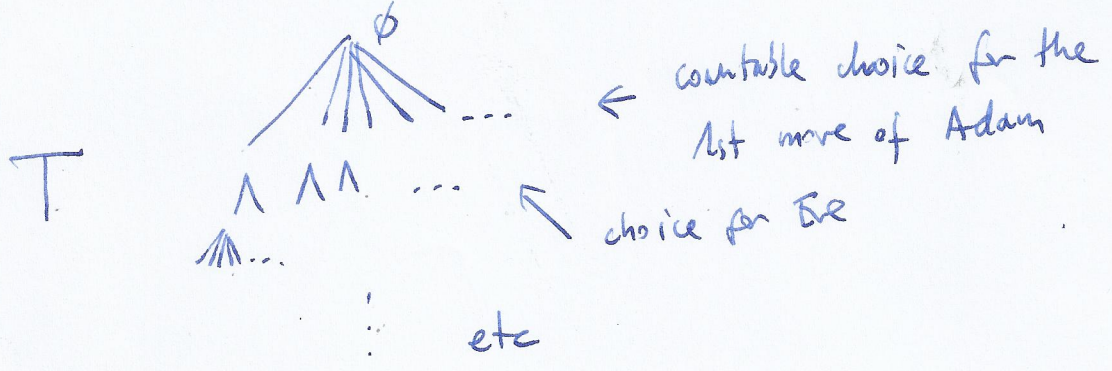 ∅
← countable choice for the
1st move of Adam
T
...
choice for Eve
...
⋮ etc